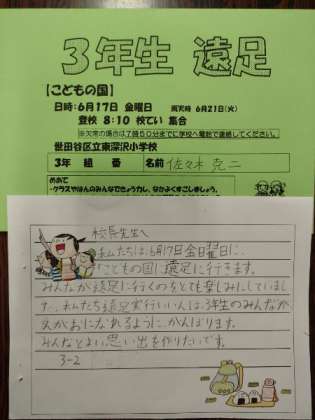 3年生 遠足
【こどもの国】
日時：6月17日 金曜日 雨天時 6月21日（火）
登校 8:10 校てい 集合
※欠席の場合は7時50分までに学校へ電話で連絡してください。
世田谷区立東深沢小学校
3年 組 番 名前 佐々木 克二
めあて
・クラスやはんのみんなできょうりょくし、なかよくすごしましょう。
校長先生へ
私たちは、6月17日金曜日に
「こどもの国」に遠足に行きます。
みんなが遠足に行くのをとても楽しみにしていまし
た。私たち遠足実行いいんは、3年生のみんなが
えがおになれるようにがんばります。
みんなとよい思い出を作りたいです。
3-2